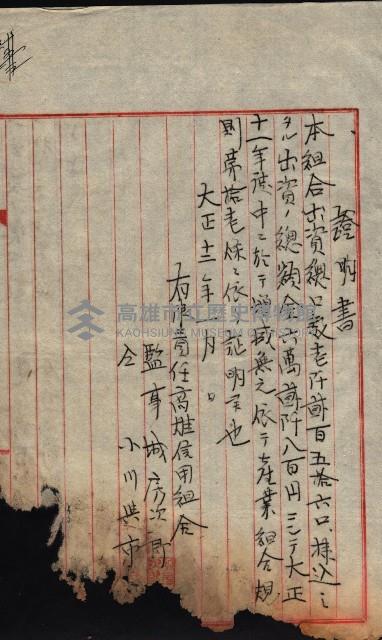 證明書
本組合出資總口数老阡貳百五拾六口、拂込ミ
タル出資ノ總額金六萬貳阡八百円ニシテ大正
十一年度中ニ於テ増減無之依テ産業組合規
則第拾老條ニ依リ証明候也
大正十二年 月 日
有限責任高雄信用組合
監事 城戸次郎
仝 小川與市
高雄市立歷史博物館
KAOHSIUNG MUSEUM OF HISTORY